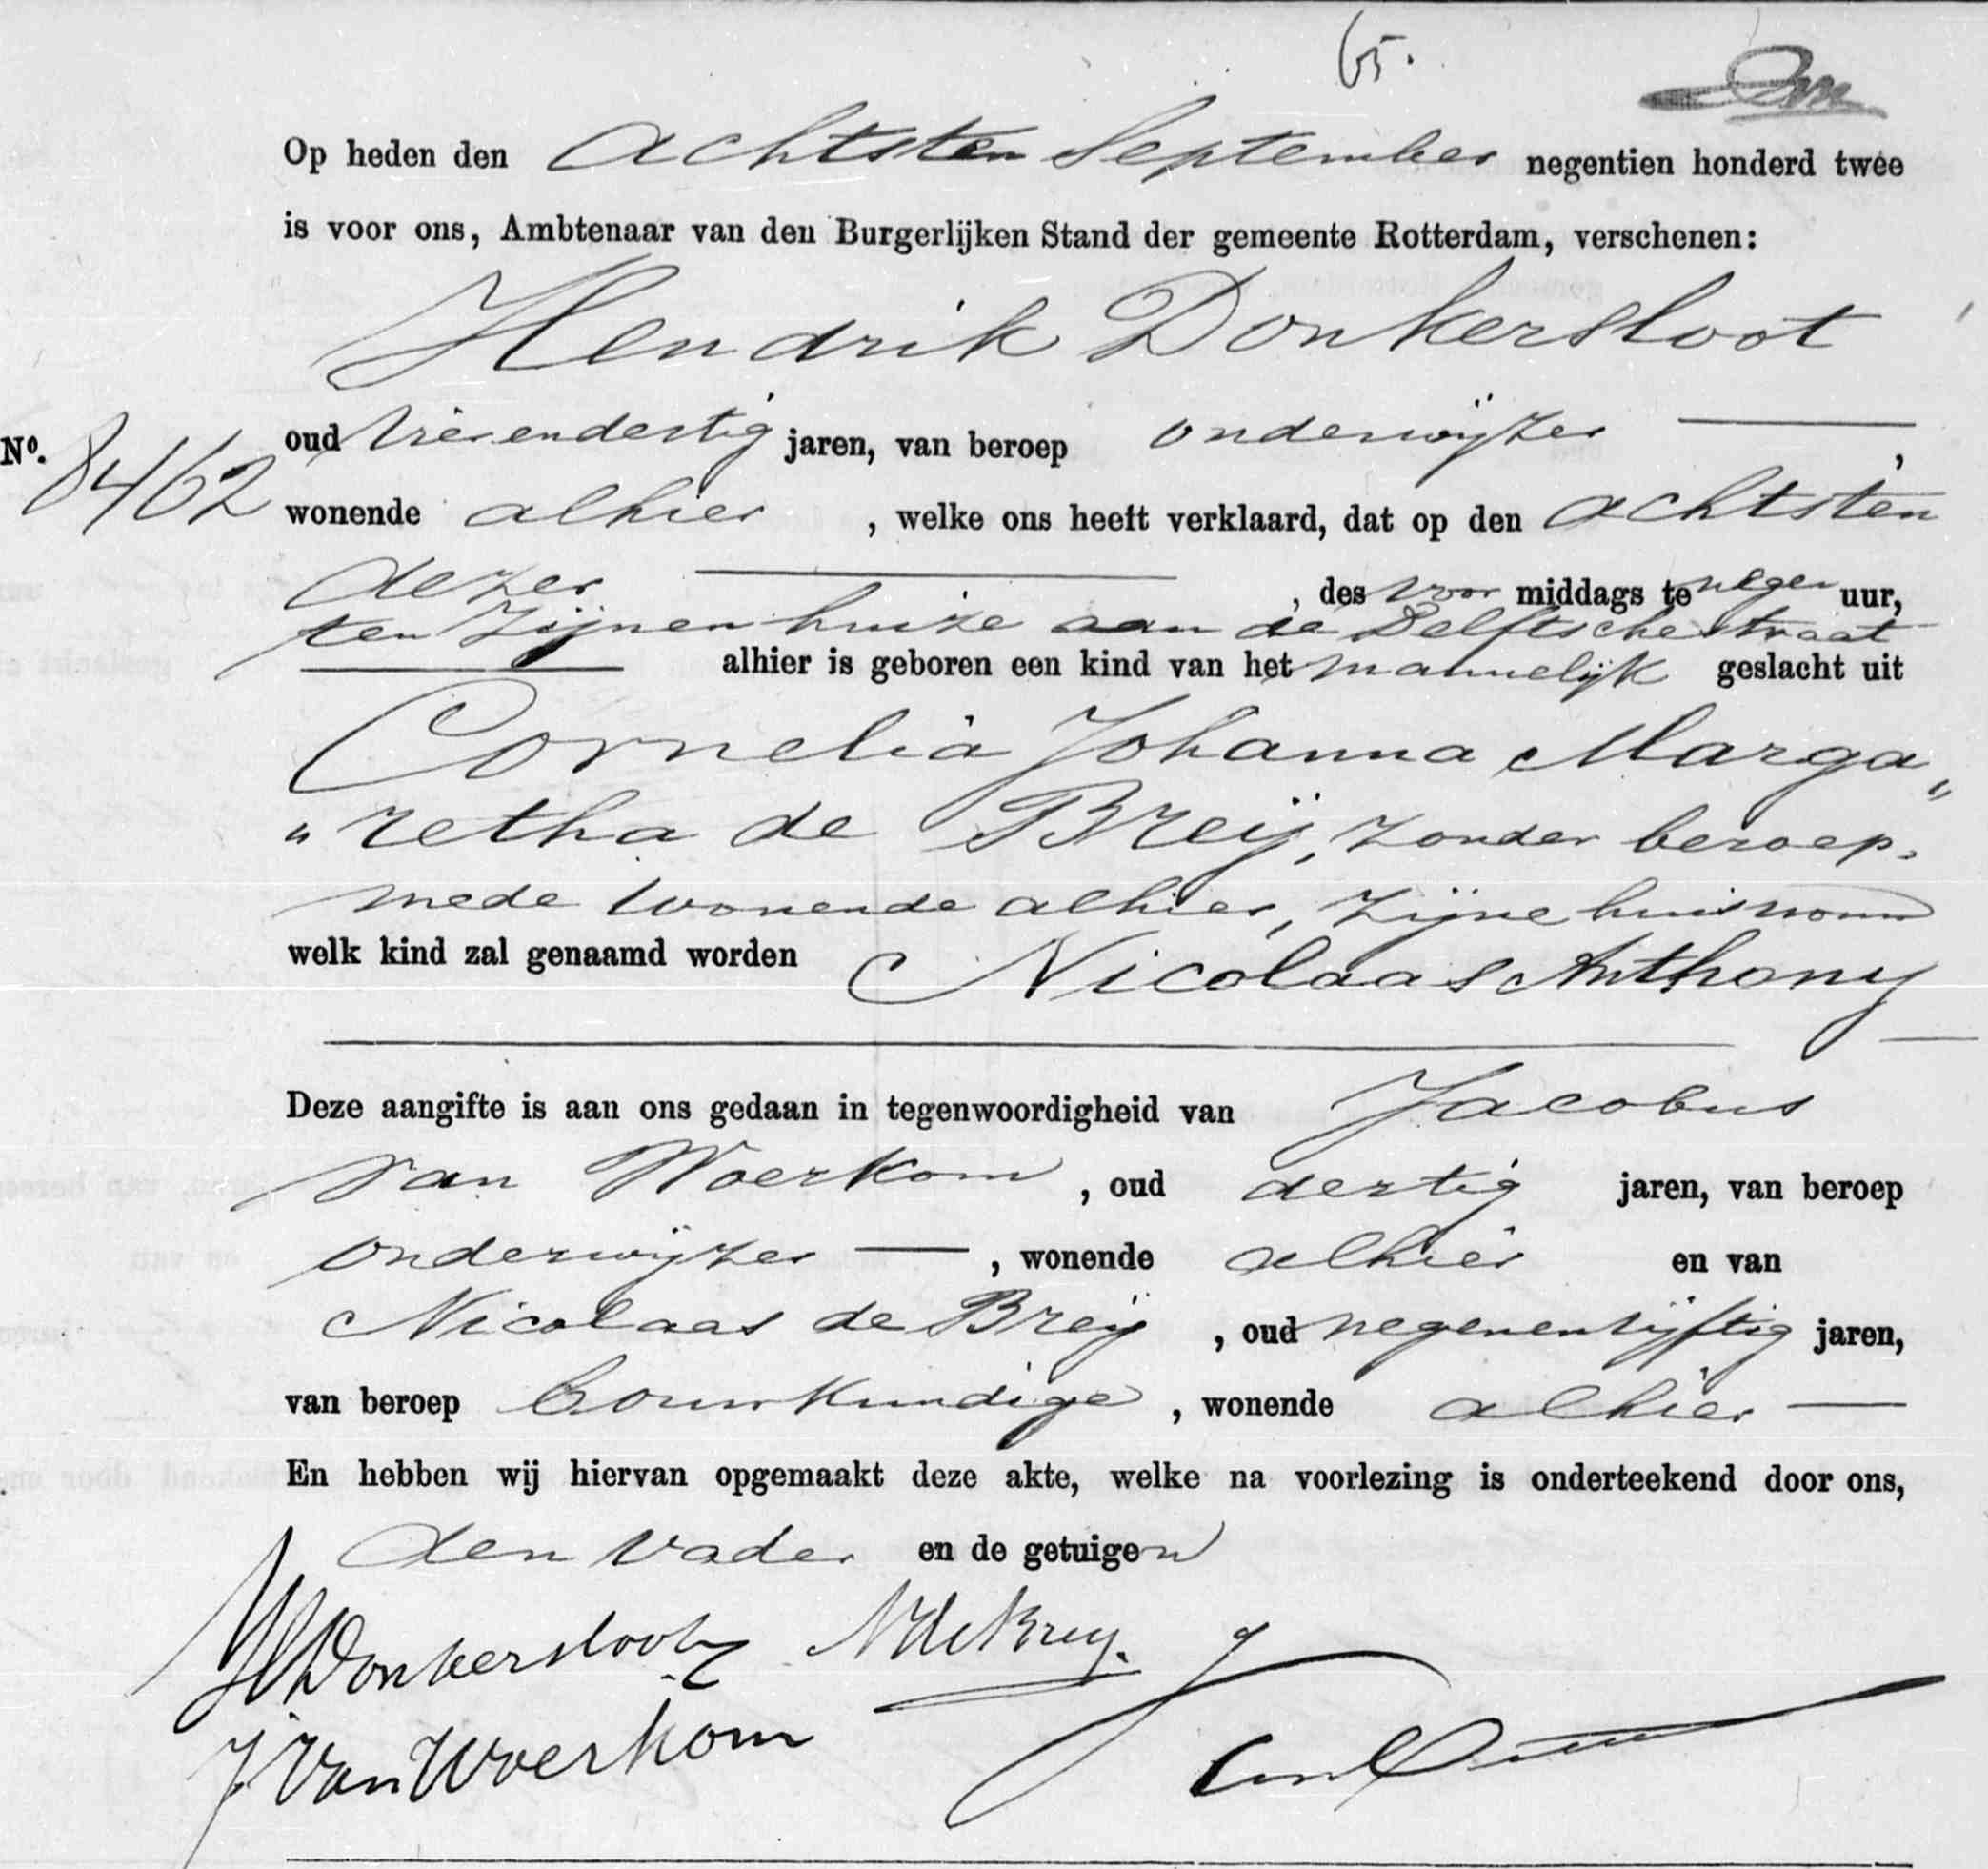 65.
Op heden den achtsten September negentien honderd twee
is voor ons, Ambtenaar van den Burgerlijken Stand der gemeente Rotterdam, verschenen:
Hendrik Donkersloot
oud vierendertig jaren, van beroep onderwijzer ,
No. 8462
wonende alhier , welke ons heeft verklaard, dat op den achtsten
dezer , des voor middags te negen uur,
ten zijnen huize aan de Delftschestraat
alhier is geboren een kind van het mannelijk geslacht uit
Cornelia Johanna Marga„
„retha de Breij, zonder beroep,
mede wonende alhier, zijne huisvrouw
welk kind zal genaamd worden Nicolaas Anthony
Deze aangifte is aan ons gedaan in tegenwoordigheid van Jacobus
van Woerkom , oud dertig jaren, van beroep
onderwijzer , wonende alhier en van
Nicolaas de Breij , oud negenenvijftig jaren,
van beroep bouwkundige , wonende alhier
En hebben wij hiervan opgemaakt deze akte, welke na voorlezing is onderteekend door ons,
den vader en de getuigen
HDonkersloot NdeBreij.
J van Woerkom